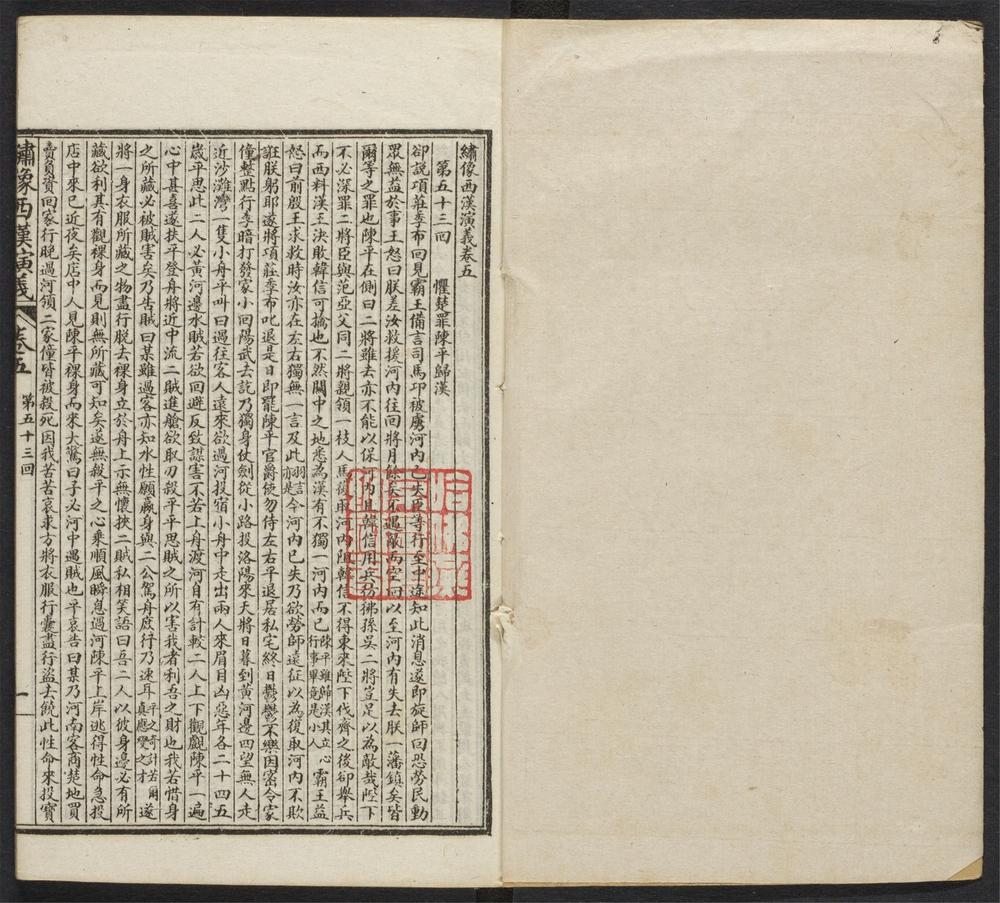 繡像西漢演義卷五
第五十三回　懼楚罪陳平歸漢
卻說項莊季布回見霸王備言司馬卬被虜河內已失臣等行至中途知此消息遂即旋師曰恐勞民動
眾無益於事王怒曰朕差汝救援河內往回將月餘矣不遇敵而空回以至河內有失去朕一藩鎮矣皆
爾等之罪也陳平在側曰二將雖去亦不能以保河內且韓信用兵彷彿孫吳二將豈足以為敵哉陛下
不必深罪二將臣與范亞父同二將親領一枝人馬復取河內阻韓信不得東來陛下伐齊之後卻舉兵
而西料漢王決敗韓信可擒也不然關中之地悉為漢有不獨一河內而已陳平雖歸漢其立心行事畢竟是小人霸王益
怒曰前殷王求救時汝亦在左右獨無一言及此羽言亦是今河內已失乃欲勞師遠征以為復取河內不欺
誑朕躬耶遂將項莊季布叱退是日即罷陳平官爵使勿侍左右平退居私宅終日鬱鬱不樂因密令家
僮整點行李暗打發家小回陽武去訖乃獨身仗劍從小路投洛陽來天將日暮到黃河邊四望無人走
近沙灘灣一隻小舟平叫曰過往客人遠來欲過河投宿小舟中走出兩人來眉目凶惡年各二十四五
歲平思此二人必黃河邊水賊若欲回避反致謀害不若上舟渡河自有計較二人上下觀覷陳平一遍
心中甚喜遂扶平登舟將近中流二賊進艙欲取刃殺平平思賊之所以害我者利吾之財也我若惜身
之所藏必被賊害矣乃告賊曰某雖過客亦知水性願嬴身與二公駕舟庶行乃速耳平之奇計若爾真應變之才遂
將一身衣服所藏之物盡行脫去裸身立於舟上示無懷挾二賊私相笑語曰吾二人以彼身邊必有所
藏欲利其有觀裸身而見則無所藏可知矣遂無殺平之心乘順風瞬息過河陳平上岸逃得性命急投
店中來已近夜矣店中人見陳平裸身而來大驚曰子必河中遇賊也平哀告曰某乃河南客商楚地買
賣負資回家行晚過河領二家僮皆被殺死因我苦苦哀求方將衣服行囊盡行盜去饒此性命來投寶
繡像西漢演義　卷五　第五十三回　一